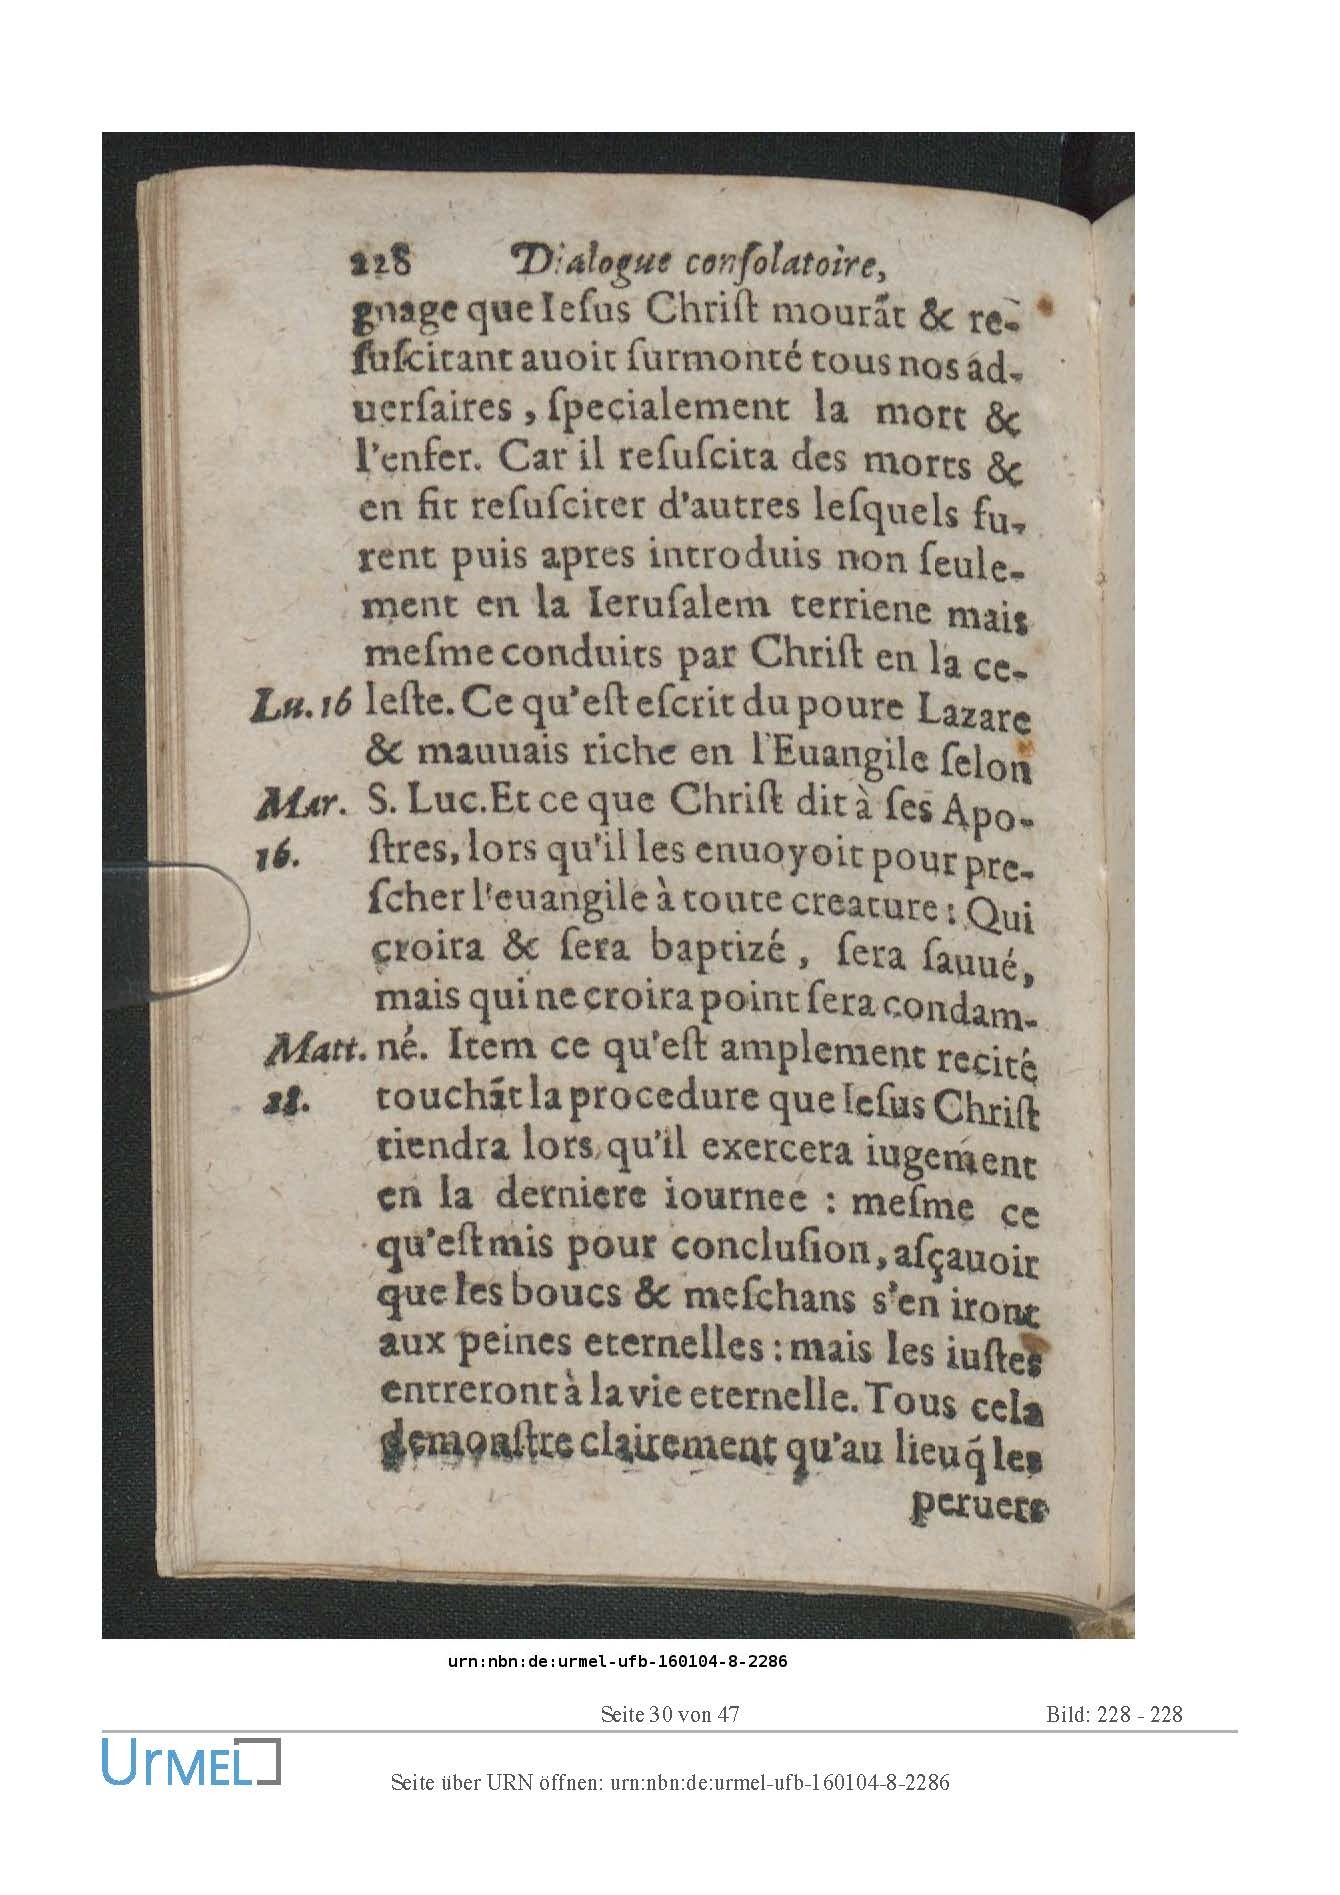 228 Dialogue conſolatoire,
gnage que Ieſus Chriſt mourãt & re-
ſuſcitant auoit ſurmonté tous nos ad-
uerſaires, ſpecialement la mort &
l'enfer. Car il reſuſcita des morts &
en fit reſuſciter d'autres leſquels fu-
rent puis apres introduis non ſeule-
ment en la Ieruſalem terriene mais
meſme conduits par Chriſt en la ce-
Lu. 16 leſte. Ce qu'eſt eſcrit du poure Lazare
& mauuais riche en l'Euangile ſelon
Mar. S. Luc. Et ce que Chriſt dit à ſes Apo-
16. ſtres, lors qu'il les enuoyoit pour pre-
ſcher l'euangile à toute creature: Qui
croira & ſera baptizé, ſera ſauué,
mais qui ne croira point ſera condam-
Matt. né. Item ce qu'eſt amplement recité
28. touchãt la procedure que Ieſus Chriſt
tiendra lors, qu'il exercera iugement
en la derniere iournee : meſme ce
qu'eſt mis pour concluſion, aſçauoir
que les boucs & meſchans s'en iront
aux peines eternelles : mais les iuſtes
entreront à la vie eternelle. Tous cela
demonſtre clairement qu'au lieu q̃ les
peruers
urn:nbn:de:urmel-ufb-160104-8-2286
Seite 30 von 47 Bild: 228 - 228
UrMEL
Seite über URN öffnen: urn:nbn:de:urmel-ufb-160104-8-2286